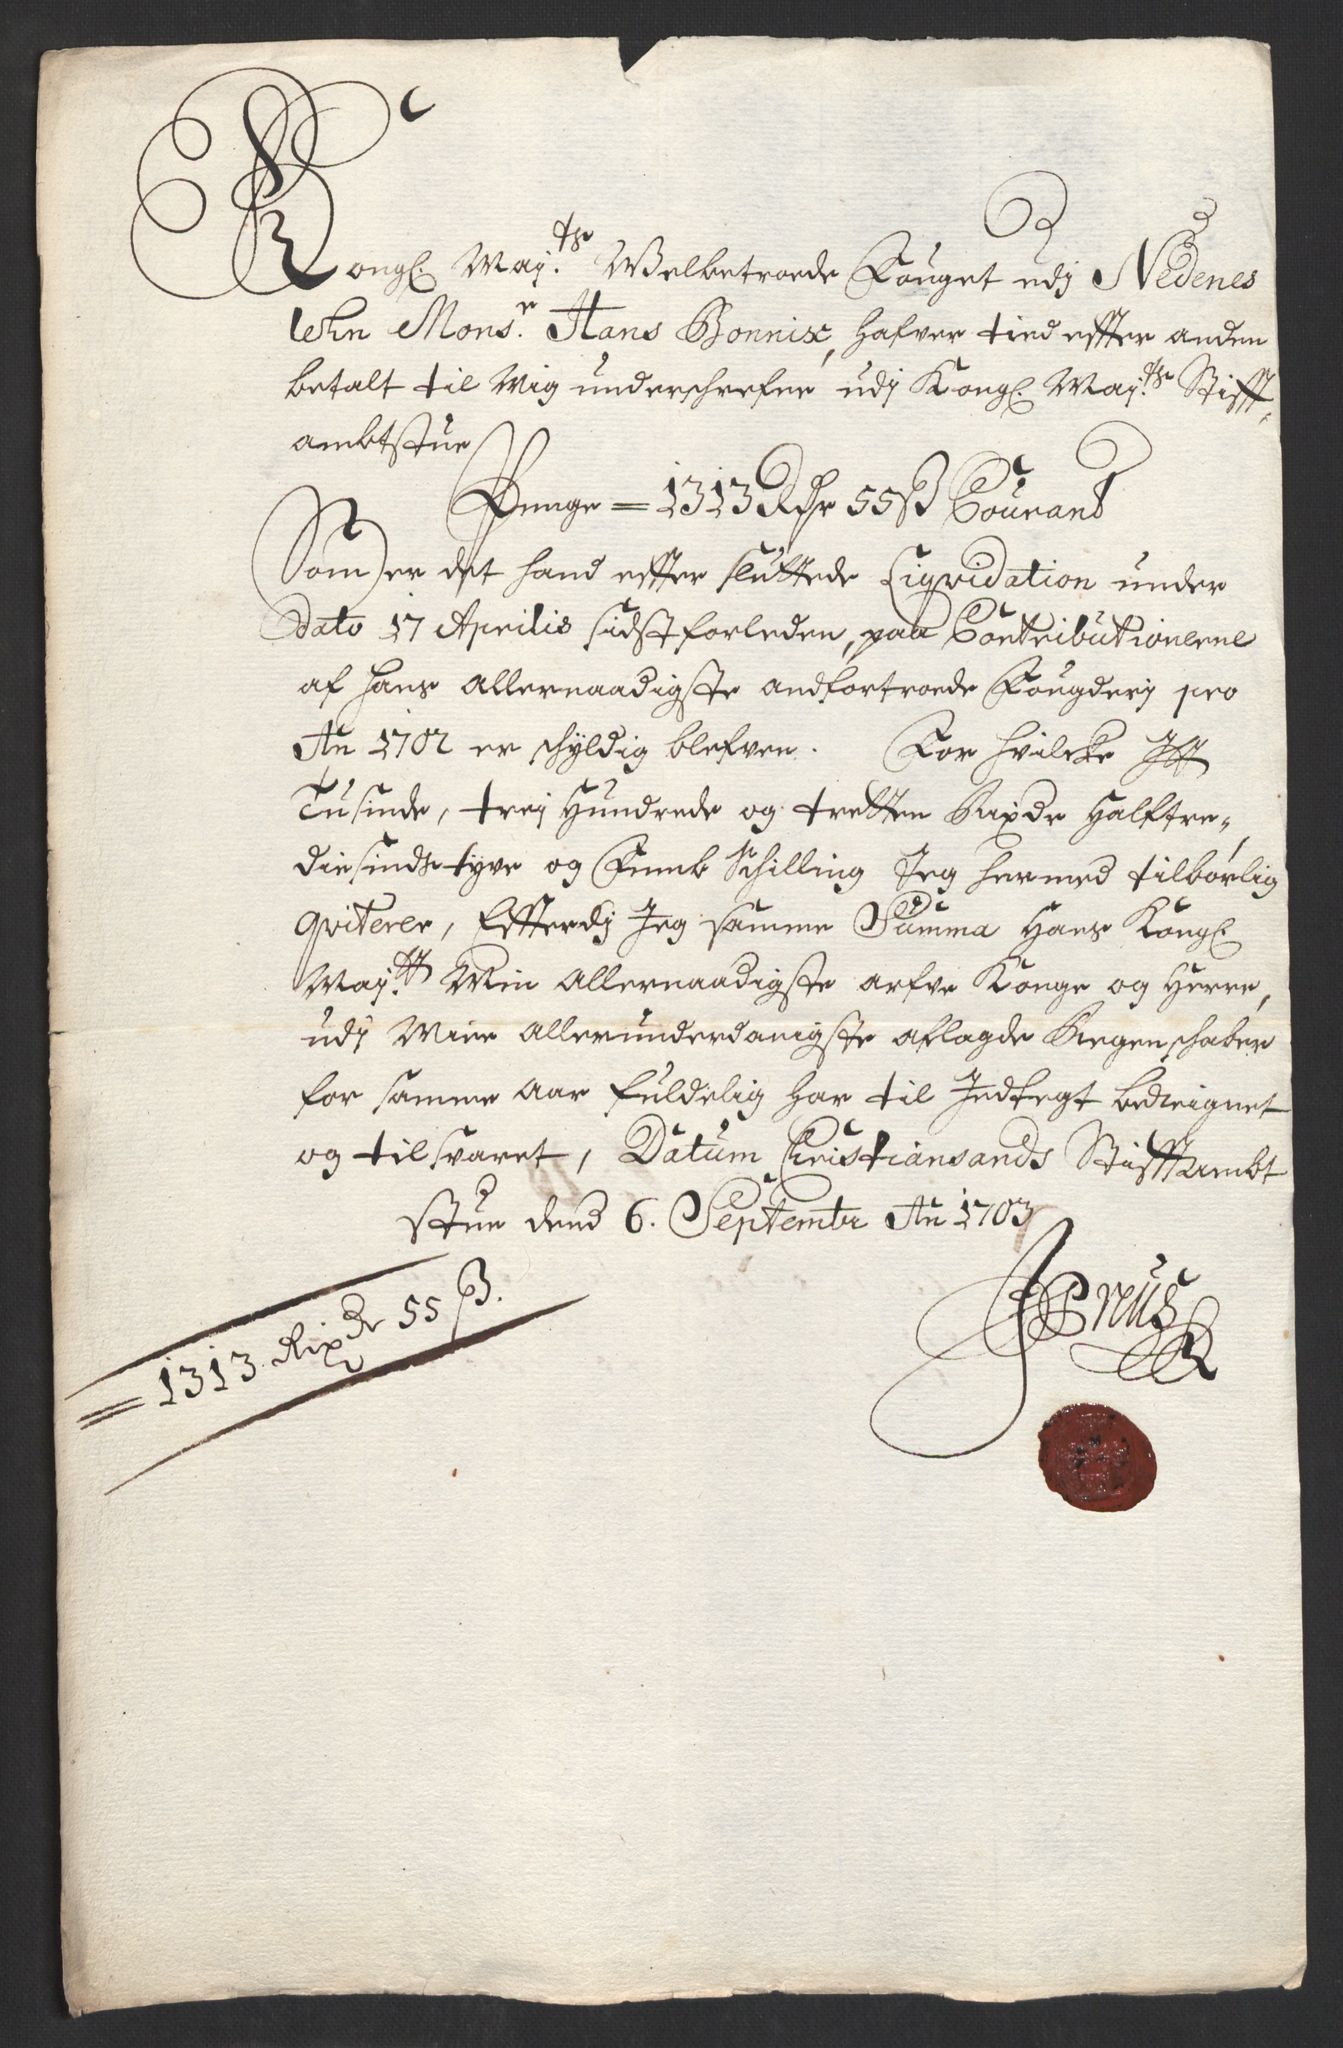 Kongl. Maÿ.tts Welbetroede Fouget udj Nedenes
lehn Mons.r Hans Bonnix, hafver tied effter anden
betalt til Mig underschrefne udj Kongl. Maÿ.tts Stifft-
ambtstue
Penge = 1313 Rdr 55 ß Courant
Som er det hand effter sluttede Liqvidation under
Dato 17 Aprilis sidstforleden, paa Contributionerne
af hans allernaadigste andfortroede Fougderj pro
An 1702 er schÿldig blefven. For hvilcke Itt
Tusinde, trej Hundrede og tretten Rixdr Halftre-
diesinds tyve og Femb Schilling Jeg hermed tilbørlig
qviterer, Efterdj Jeg samme Summa Hans Kongl
Maÿ.tt Min allernaadigste arfve Konge og Herre,
udj Mine allerunderdanigste aflagde Regenschaber
for samme Aar fuldelig har til Indtegt bereignet
og tilsvaret, Datum Christiansands Stifftambt
stue dend 6. Septembr An 1703
JPreus
= 1313. Rixdr 55 ß.